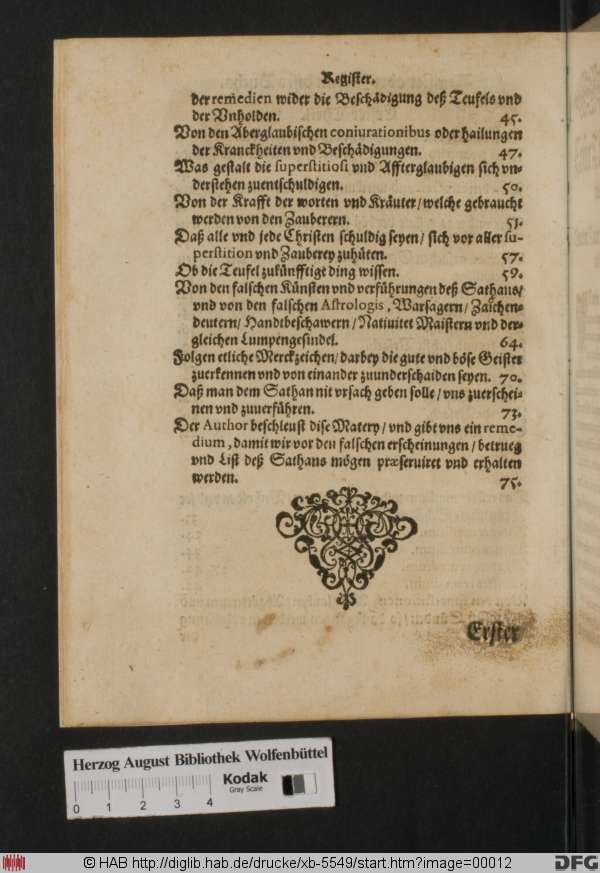 Register.
der remedien wider die Beschädigung deß Teufels vnd
der Vnholden. 45.
Von den Aberglaubischen coniurationibus oder hailungen
der Kranckheiten vnd Beschädigungen. 47.
Was gestalt die superstitiosi vnd Affterglaubigen sich vn-
derstehen zuentschuldigen. 50.
Von der Krafft der worten vnd Kräuter/welche gebraucht
werden von den Zauberern. 51.
Daß alle vnd jede Christen schuldig seyen/ sich vor aller su-
perstition vnd Zauberey zuhüten. 57.
Ob die Teufel zukünfftige ding wissen. 59.
Von den falschen Künsten vnd verführungen deß Sathans/
vnd von den falschen Astrologis, Warsagern/ Zaichen-
deutern/ Handtbeschawern/ Natiuitet Maistern vnd der-
gleichen Lumpengesindel. 64.
Folgen etliche Merckzeichen/ darbey die gute vnd böse Geister
zuerkennen vnd von einander zuunderschaiden seyen. 70.
Daß man dem Sathan nit vrsach geben solle/ vns zuerschei-
nen vnd zuuerführen. 73.
Der Author beschleust dise Matery/ vnd gibt vns ein reme-
dium, damit wir vor den falschen erscheinungen/ betrueg
vnd List deß Sathans mögen præseruiret vnd erhalten
werden. 75.
Erster
Herzog August Bibliothek Wolfenbüttel
Kodak
Gray Scale
0 1 2 3 4
© HAB http://diglib.hab.de/drucke/xb-5549/start.htm?image=00012
DFG